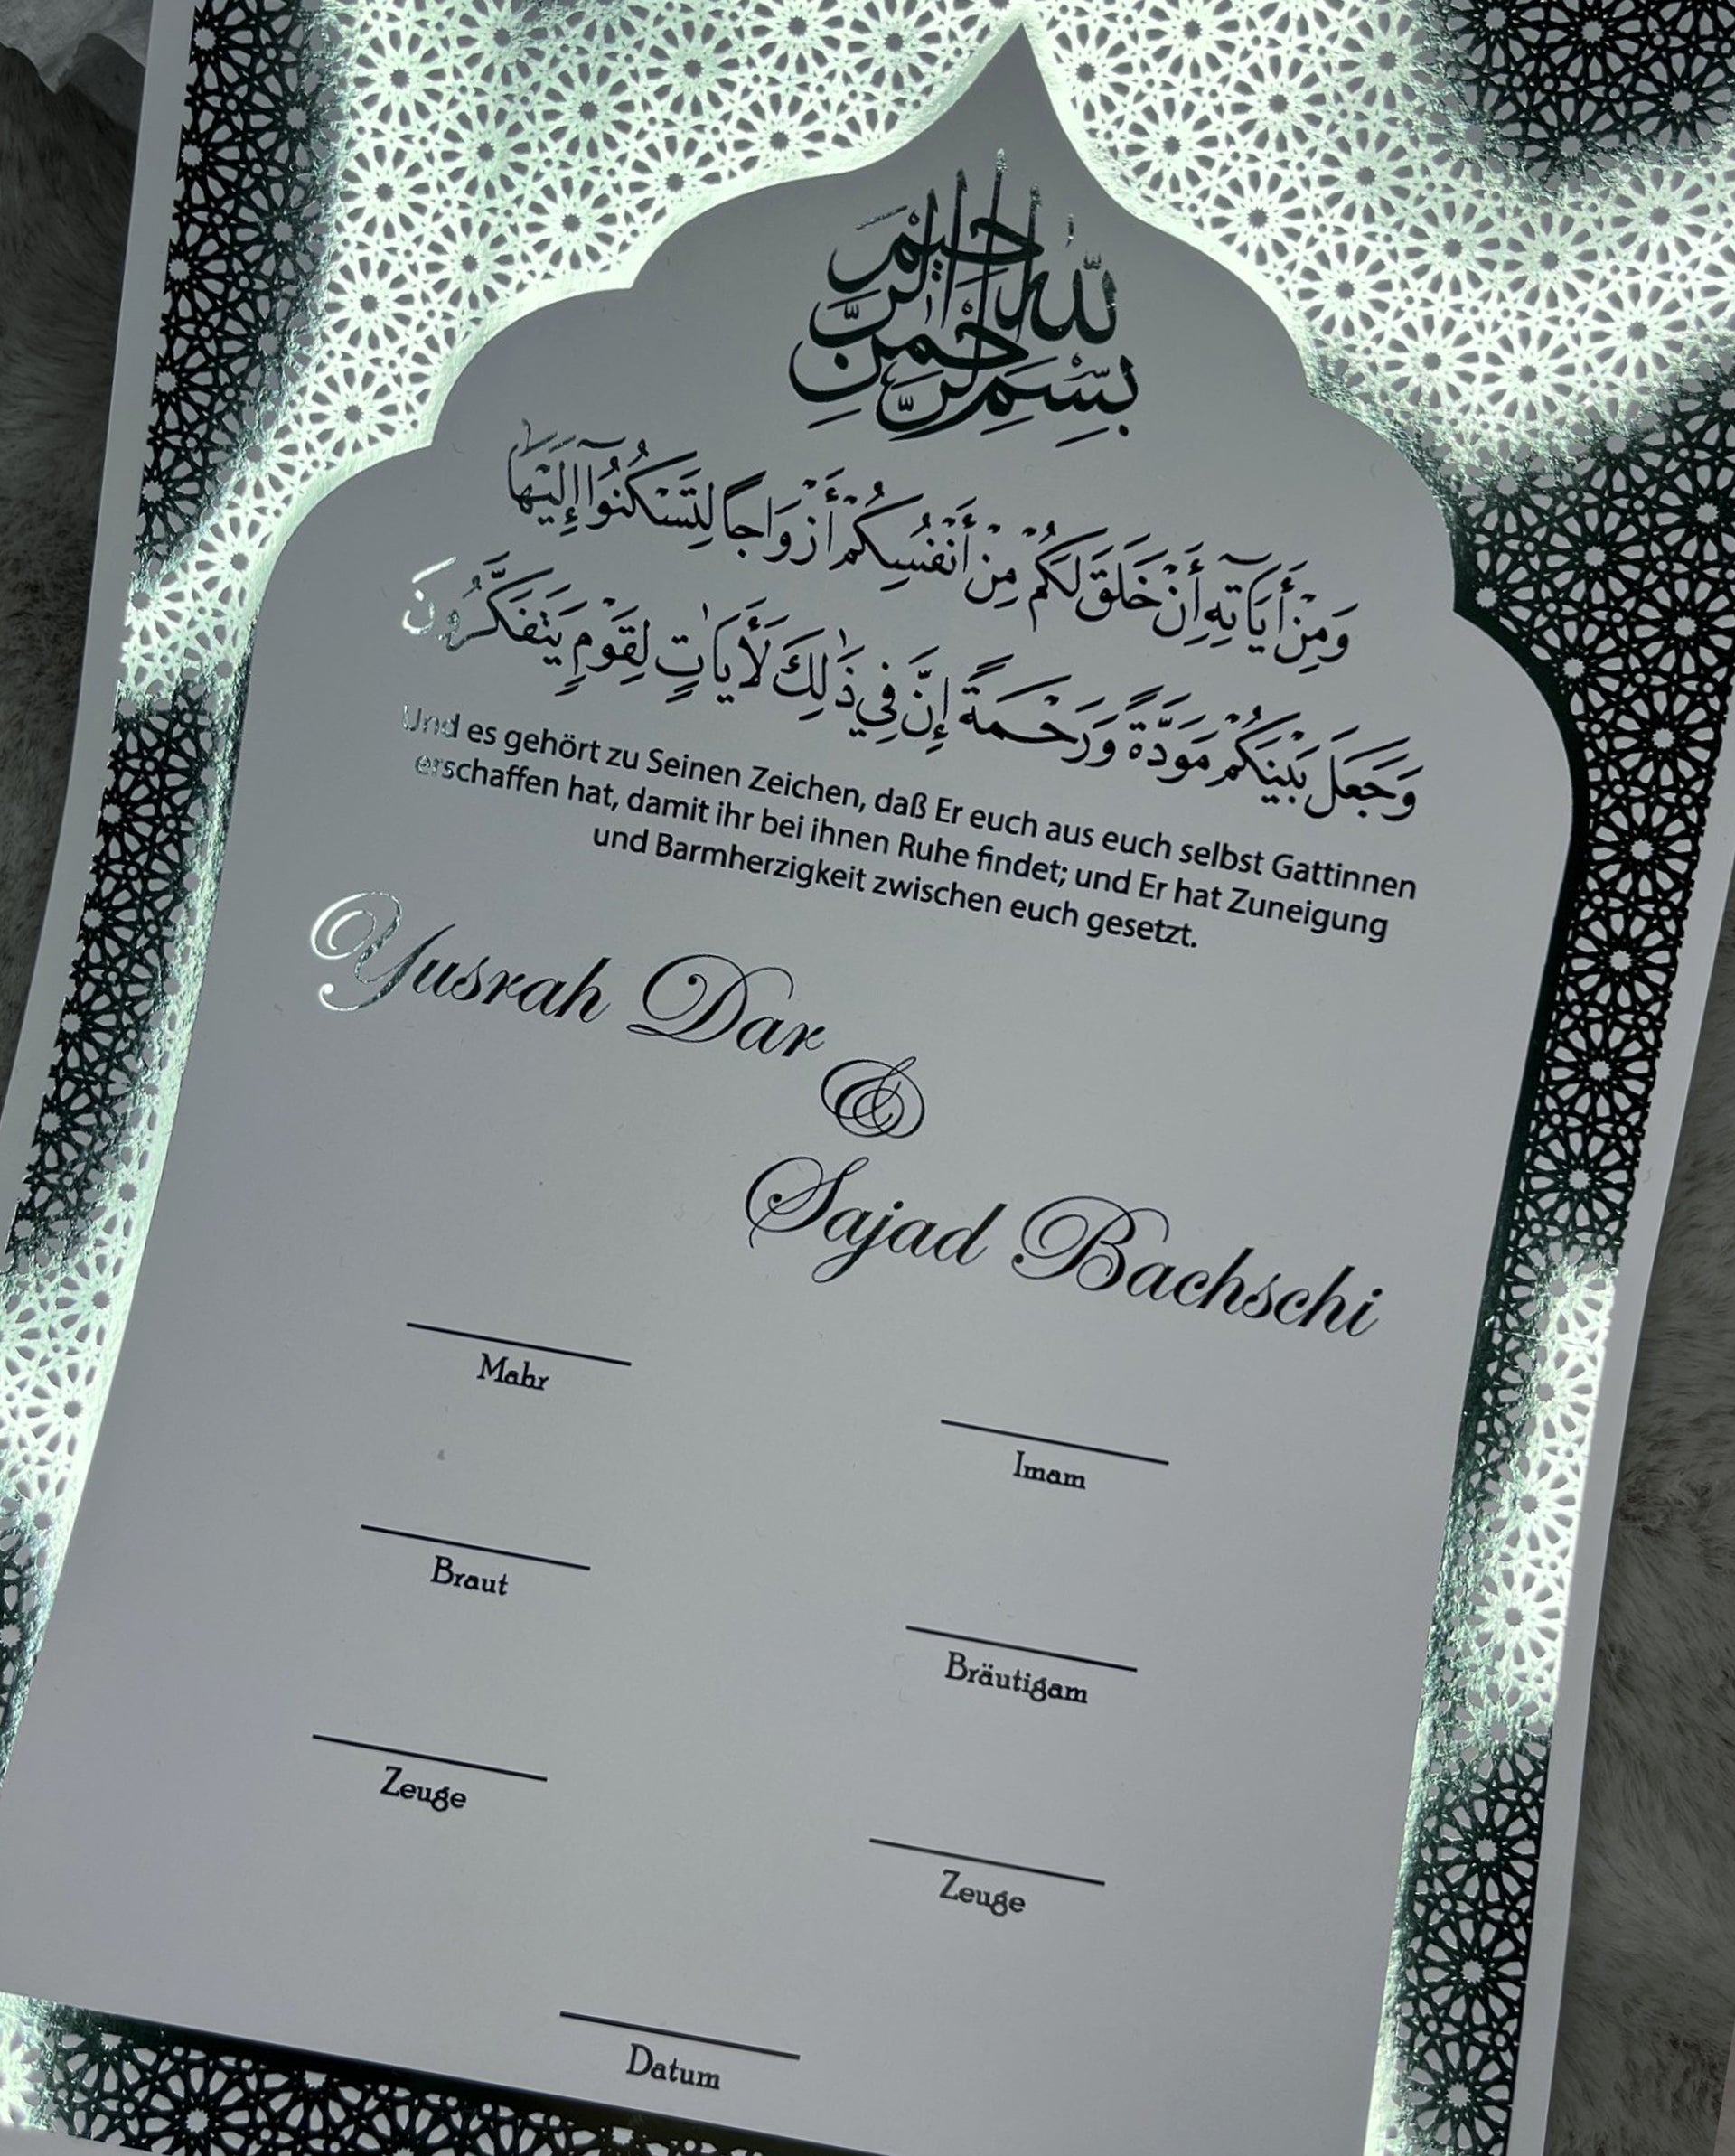 بسم الله الرحمن الرحيم
وَمِنْ أَيَاتِهِ أَنْ خَلَقَ لَكُمْ مِنْ أَنْفُسِكُمْ أَزْوَاجاً لِتَسْكُنُوٓا إِلَيْهَا
وَجَعَلَ بَيْنَكُمْ مَوَدَّةً وَرَحْمَةً إِنَّ فِي ذٰلِكَ لَأَيَاتٍ لِقَوْمٍ يَتَفَكَّرُونَ
Und es gehört zu Seinen Zeichen, daß Er euch aus euch selbst Gattinnen
erschaffen hat, damit ihr bei ihnen Ruhe findet; und Er hat Zuneigung
und Barmherzigkeit zwischen euch gesetzt.
Yusrah Dar
&
Sajad Bachschi
Mahr
Imam
Braut
Bräutigam
Zeuge
Zeuge
Datum